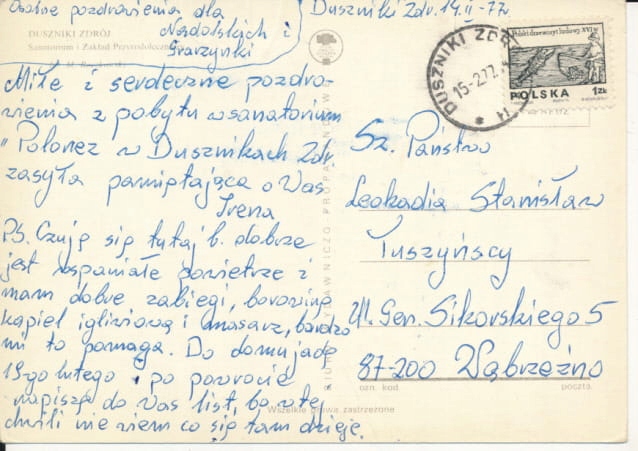 Osobne pozdrowienia dla
Nadolskich i
Grażynki
Duszniki Zdr. 14.II-77
DUSZNIKI ZDRÓJ
Sanatorium i Zakład Przyrodoleczniczy
Miłe i serdeczne pozdro-
wienia z pobytu w sanatorium
"Polonez w Dusznikach Zdr.
zasyła pamiętająca o Was
Irena
PS. Czuję się tutaj b. dobrze
jest wspaniałe powietrze i
mam dobre zabiegi, borowinę
kąpiel igliwiową i masaż, bardzo
mi to pomaga. Do domu jadę
19-go lutego i po powrocie
napiszę do Was list, bo w tej
chwili nie wiem co się tam dzieje.
DUSZNIKI ZDR
15-2.77
Polski drzeworyt ludowy XVI w.
POLSKA 1zł
Sz. Państwo
Leokadia Stanisław
Tuszyńscy
Ul. Gen. Sikorskiego 5
87-200 Wąbrzeźno
ozn. kod
poczta
Wszelkie prawa zastrzeżone